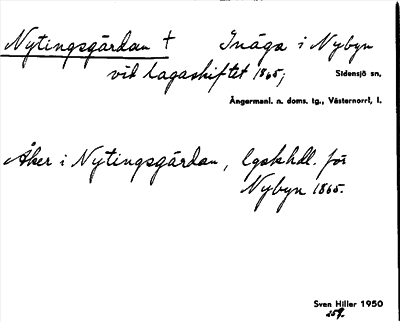 Nytingsgårdan † Inäga i Nybyn
vid lagaskiftet 1865;
Sidensjö sn,
Ångermanl. n. doms. tg., Västernorrl, l.
Åker i Nytingsgårdan, lgskhdl. för
Nybyn 1865.
Sven Hiller 1950